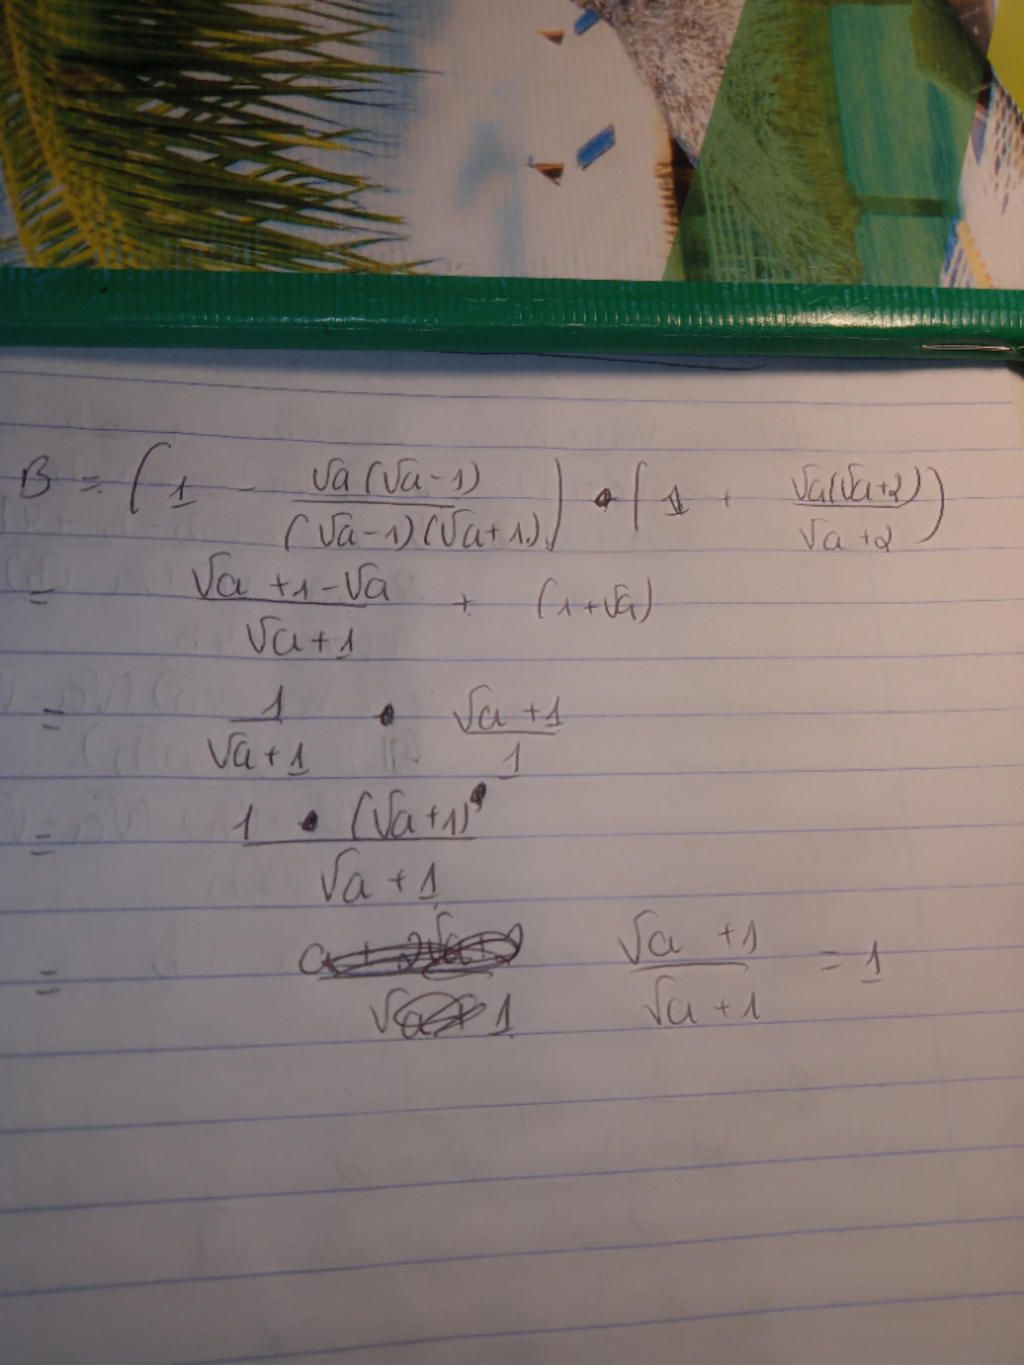 B = (1 - √a(√a-1) / (√a-1)(√a+1)) • (1 + √a(√a+2) / √a+2)
= √a+1-√a / √a+1 + (1+√a)
= 1 / √a+1 • √a+1 / 1
= 1 • (√a+1) / √a+1
= √a+1 / √a+1 = 1